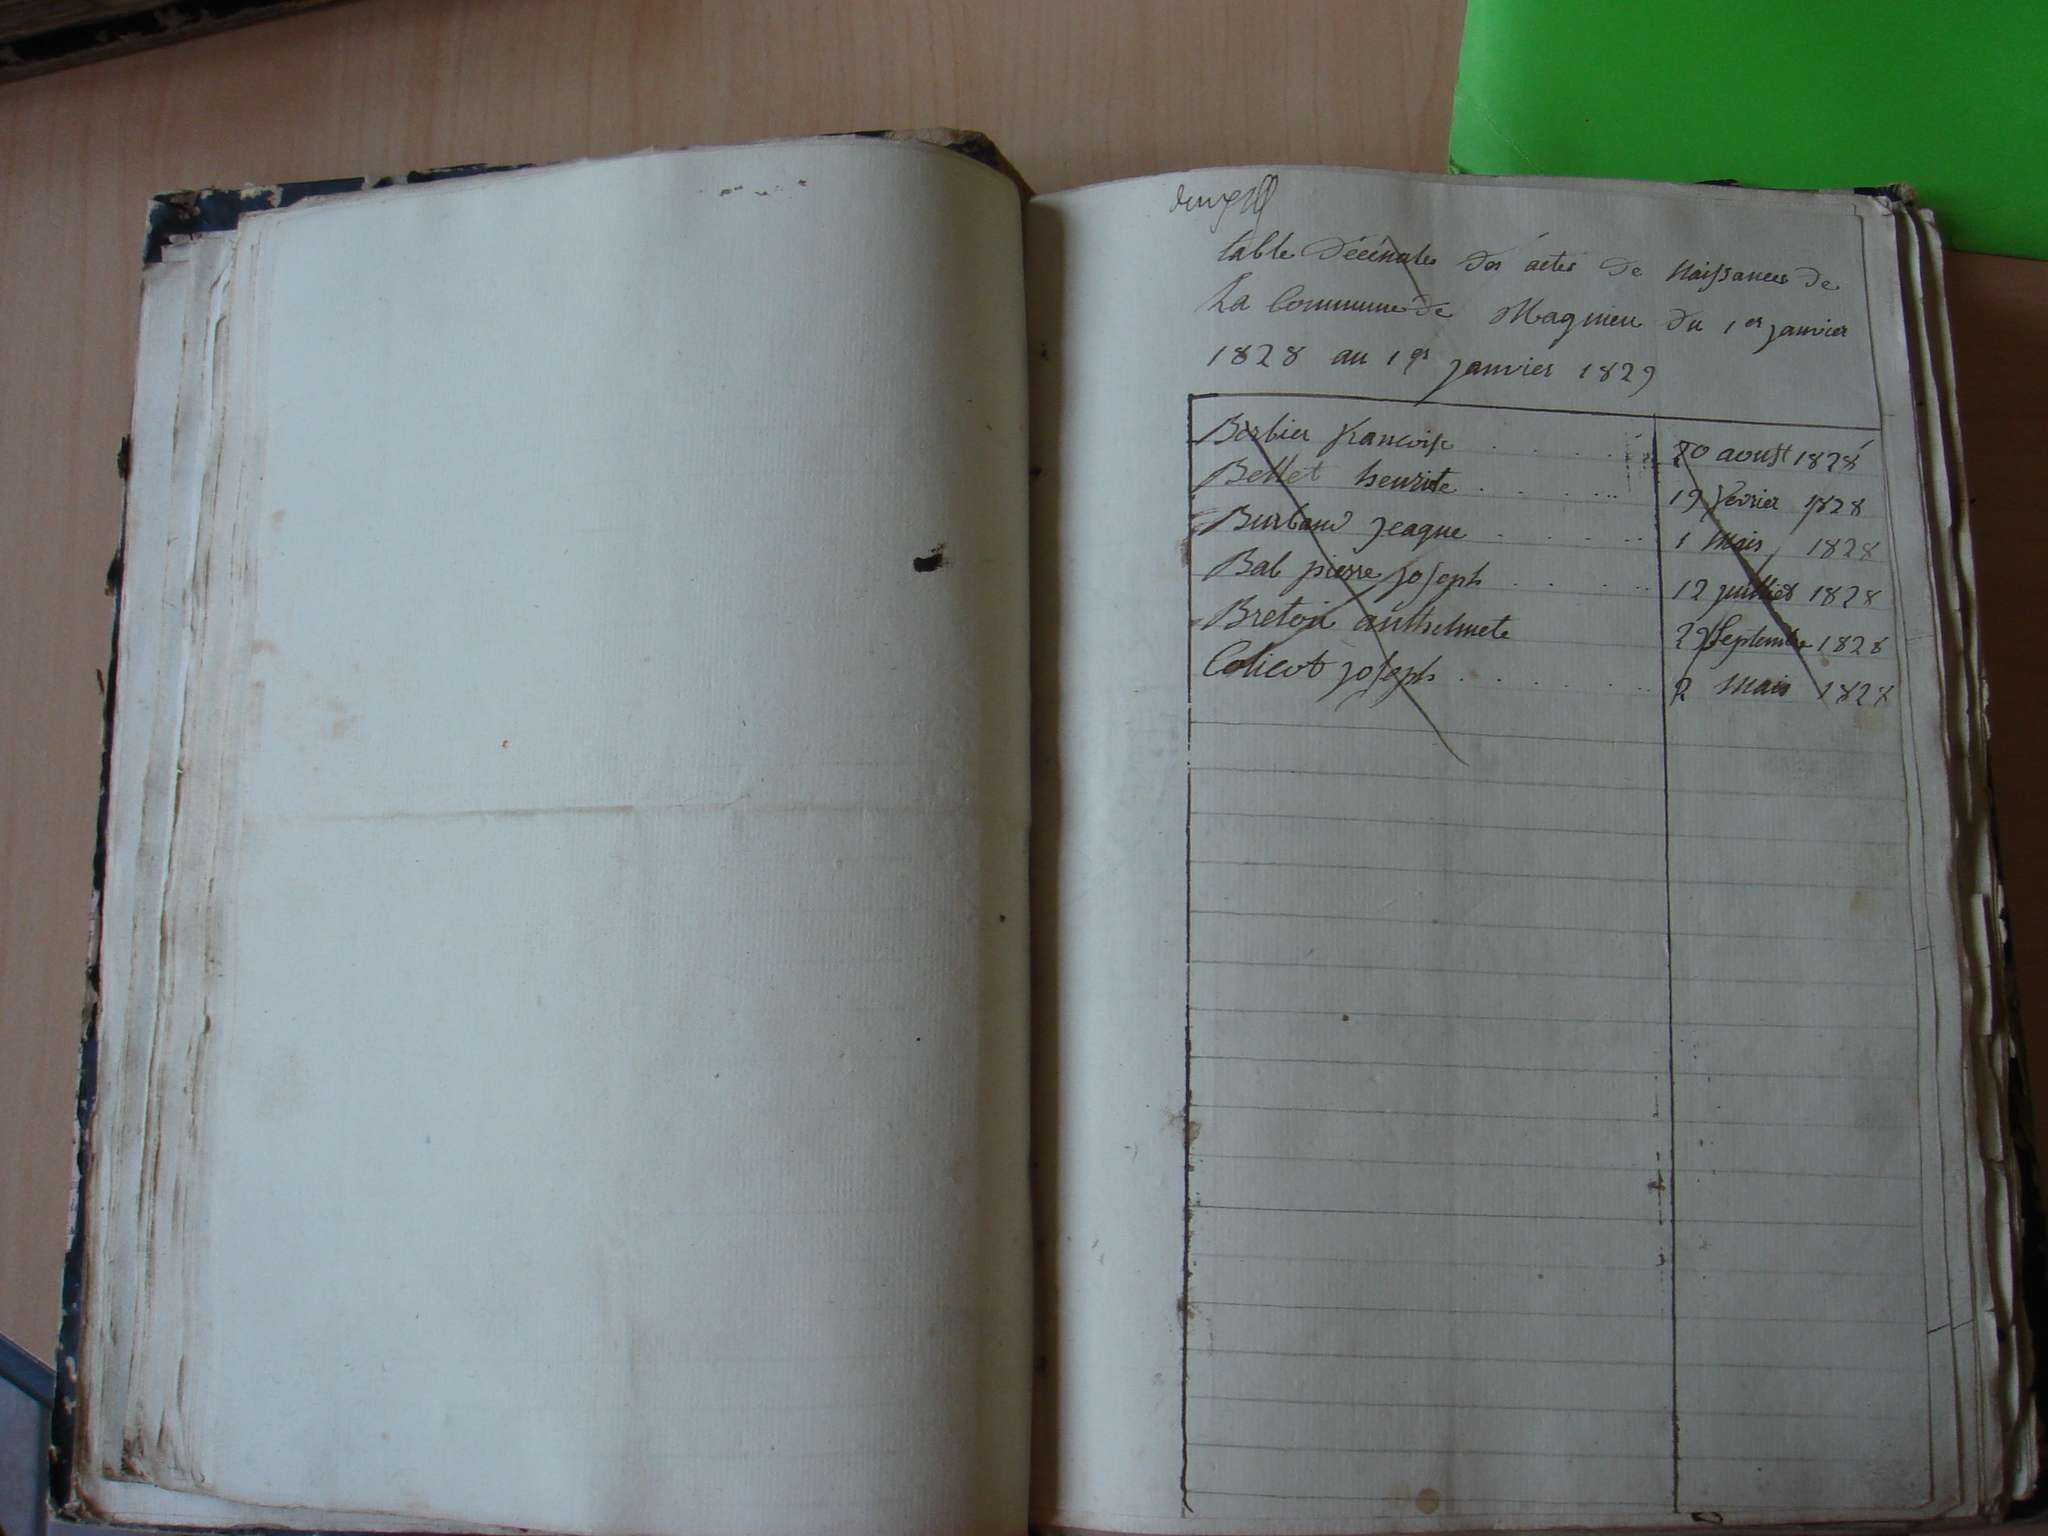 table décénales des actes de Naissances de
La Commune de Magnieu du 1er janvier
1828 au 1er janvier 1829
Berbier francoise 20 aoust 1828
Bellet henriete 19 fevrier 1828
Burband Jeaque 1 Mais 1828
Bal pierre joseph 12 juilliet 1828
Breton anthelmete 29 Septembre 1828
Colicot joseph 2 Mais 1828